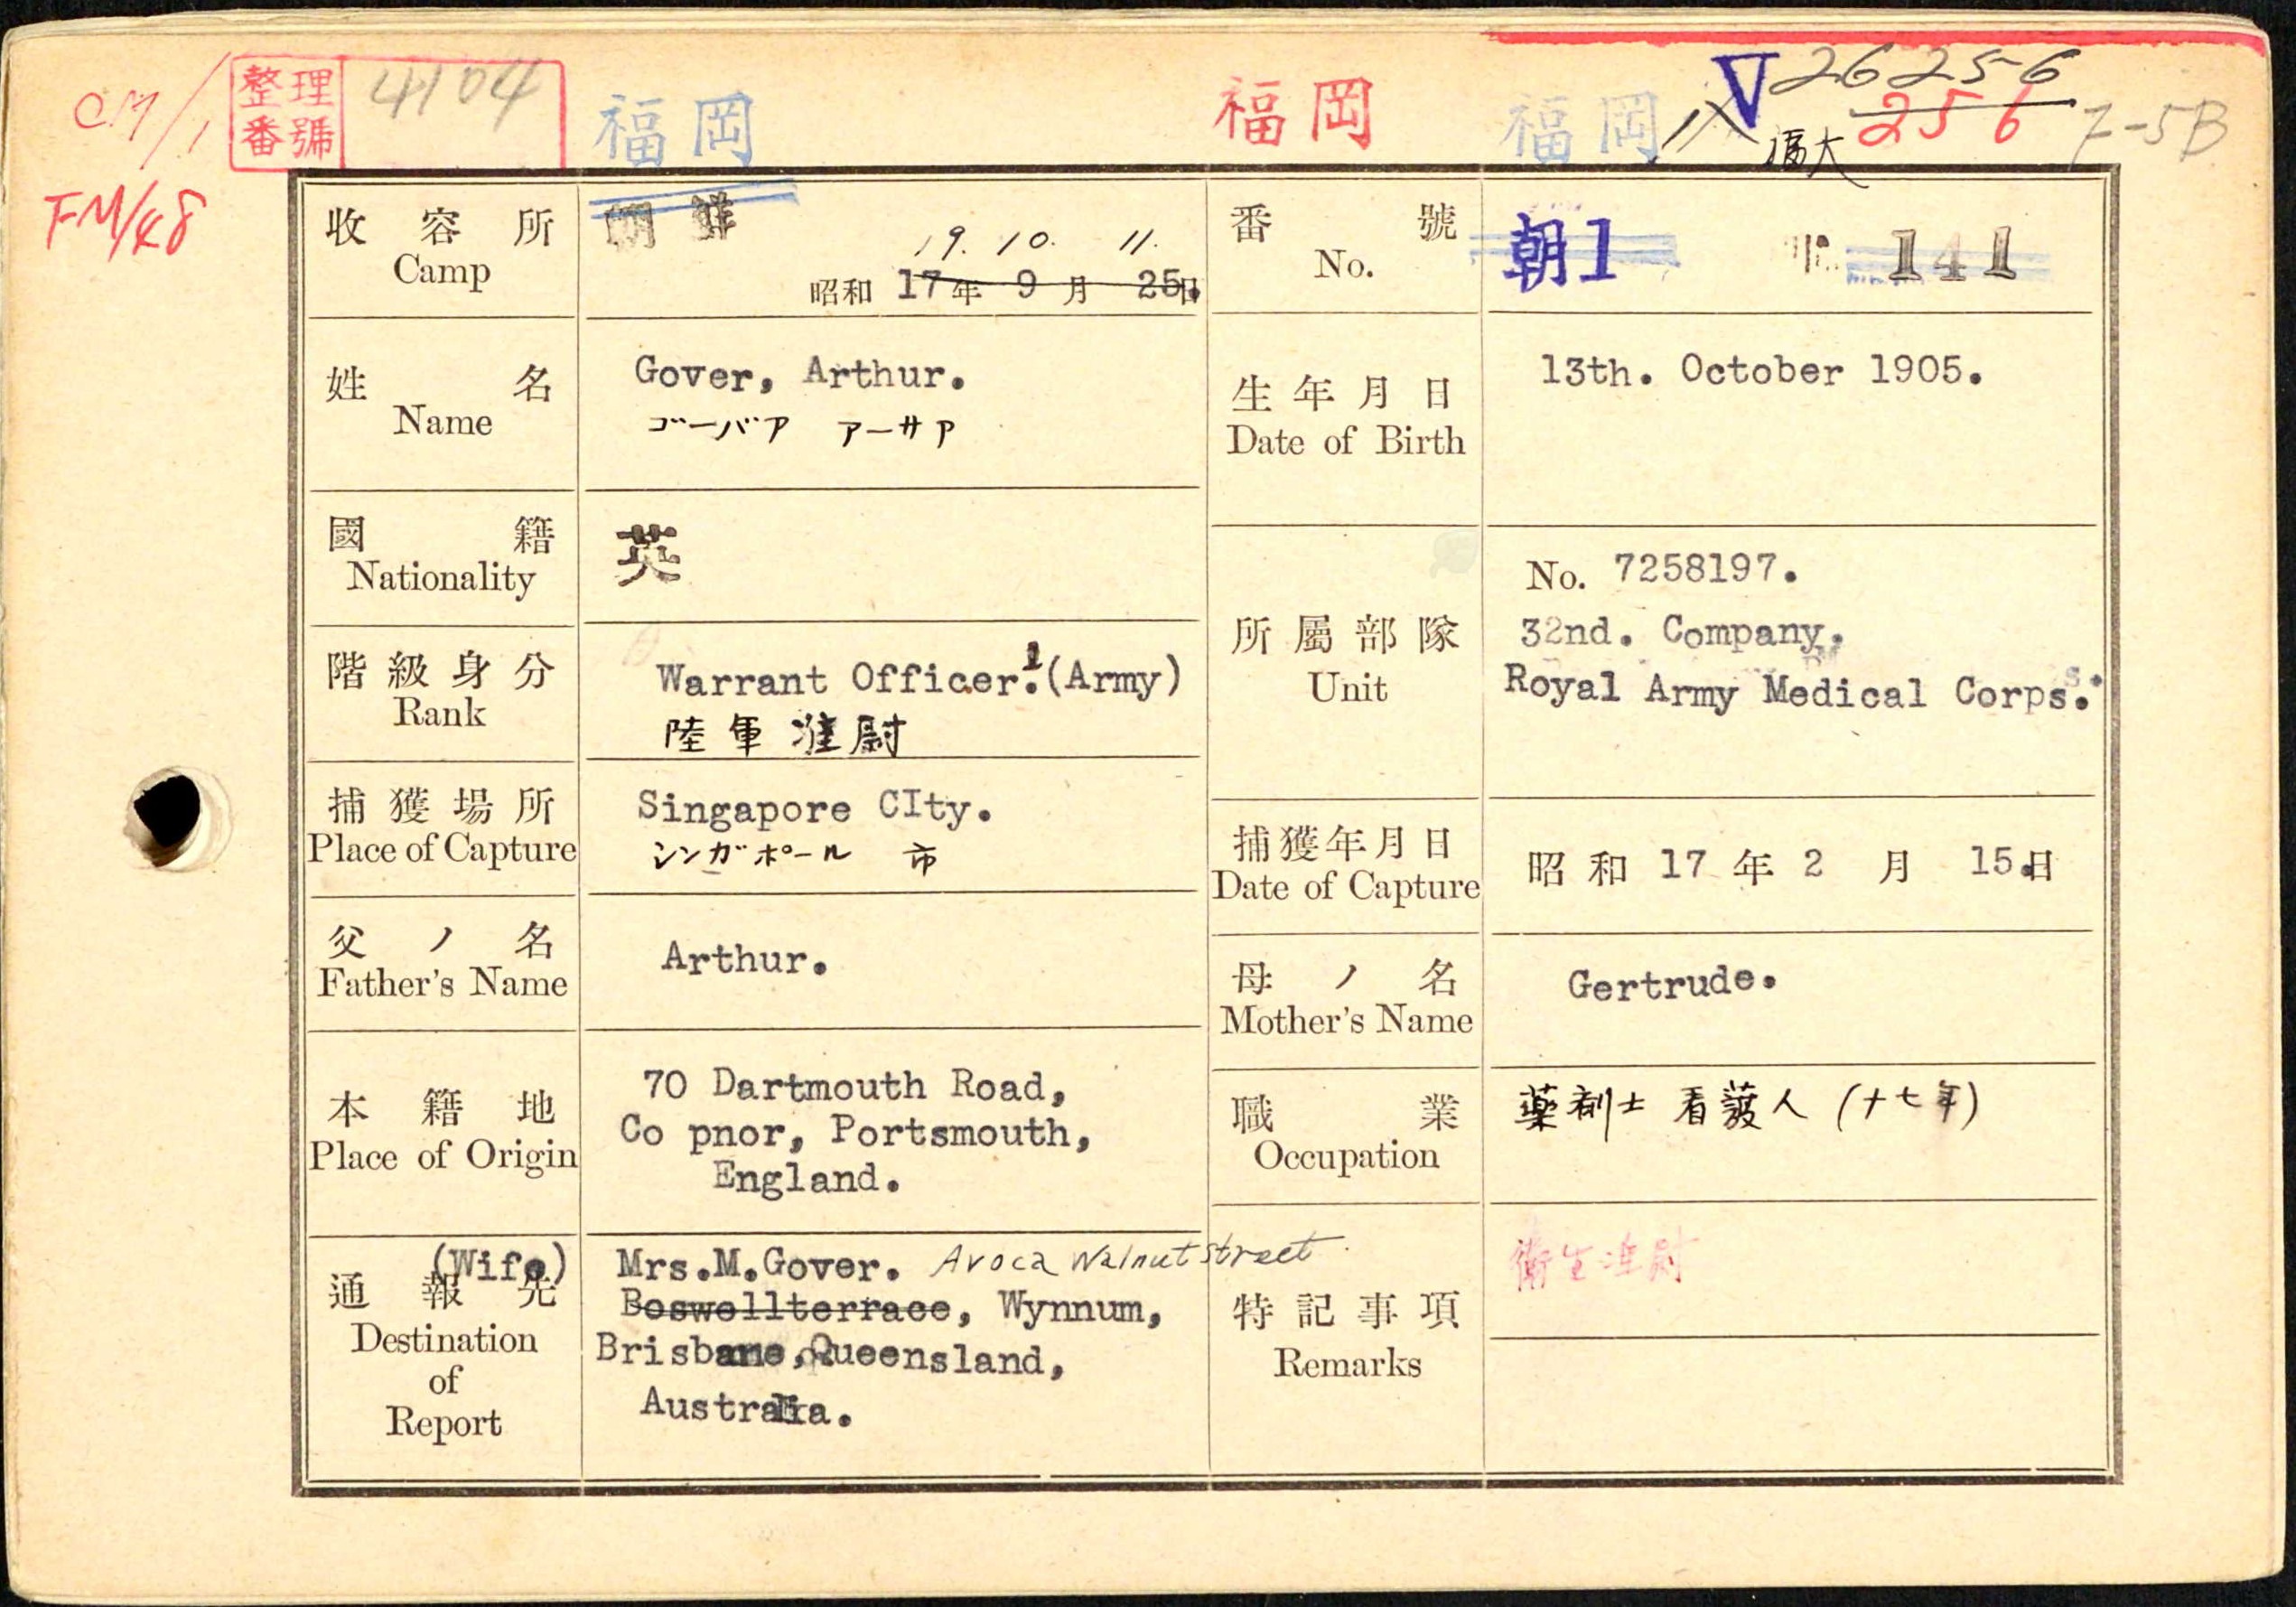 CM/1
整理番號 4104
福岡
福岡
福岡
26256
256
F-5B
FM/48
收容所
Camp
朝鮮
19. 10. 11.
昭和 17年 9月 25日
番號
No.
朝1 141
姓名
Name
Gover, Arthur.
ゴーバア アーサア
生年月日
Date of Birth
13th. October 1905.
國籍
Nationality
英
階級身分
Rank
Warrant Officer.1(Army)
陸軍准尉
所屬部隊
Unit
No. 7258197.
32nd. Company.
Royal Army Medical Corps.
捕獲場所
Place of Capture
Singapore CIty.
シンガポール 市
捕獲年月日
Date of Capture
昭和 17年 2月 15日
父ノ名
Father's Name
Arthur.
母ノ名
Mother's Name
Gertrude.
本籍地
Place of Origin
70 Dartmouth Road,
Co pnor, Portsmouth,
England.
職業
Occupation
藥剤士 看護人 (十七年)
(Wife)
通報先
Destination
of
Report
Mrs.M.Gover. Avoca Walnut street
Boswellterrace, Wynnum,
Brisbane, Queensland,
Australia.
特記事項
Remarks
衛生准尉